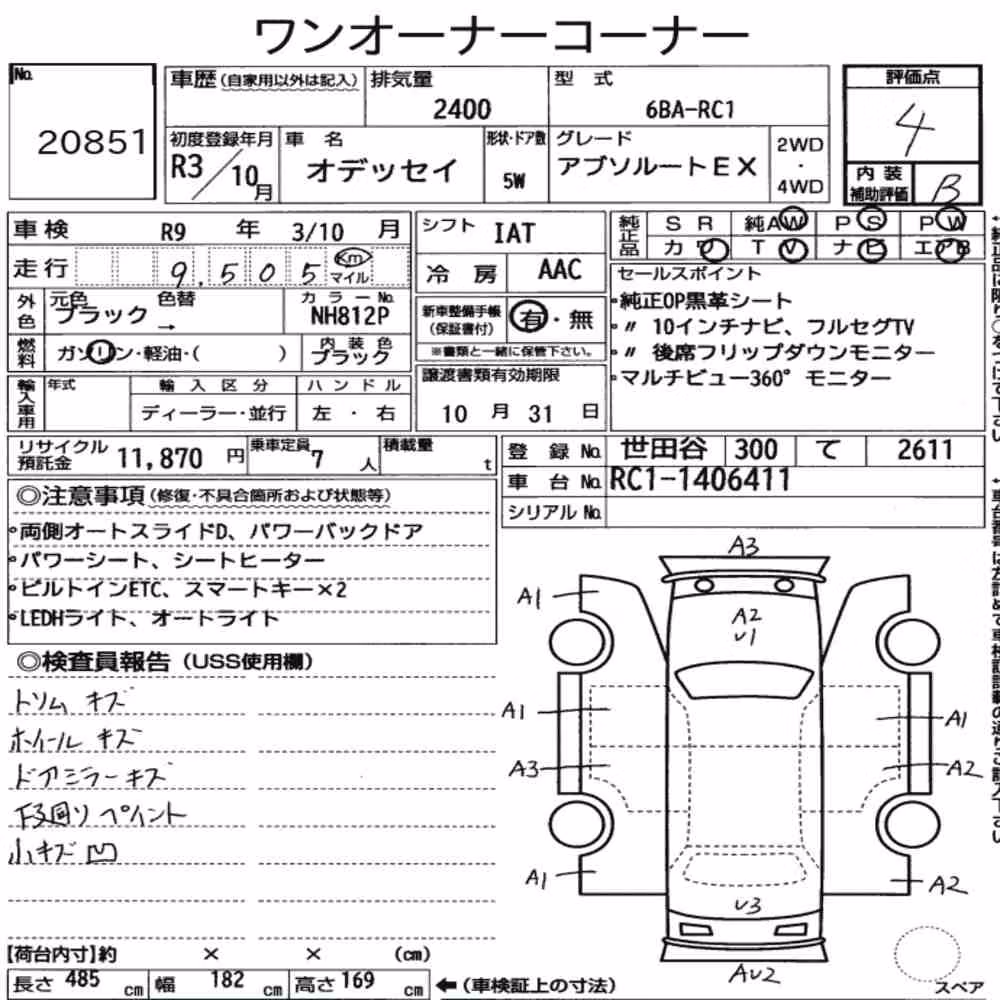 ワンオーナーコーナー
No. 20851
車歴(自家用以外は記入) 排気量 2400 型式 6BA-RC1
初度登録年月 R3/10月 車名 オデッセイ 形状・ドア数 5W グレード アブソルートEX 2WD・4WD
評価点 4
内装補助評価 B
車検 R9年 3/10月
走行 9,505 Km マイル
外色 元色 ブラック 色替 → カラーNo. NH812P
燃料 ガソリン・軽油・( ) 内装色 ブラック
輸入車用 年式 輸入区分 ディーラー・並行 ハンドル 左・右
シフト IAT
冷房 AAC
新車整備手帳(保証書付) 有・無
※書類と一緒に保管下さい。
譲渡書類有効期限
10月31日
純正品 SR 純AW PS PW
カワ TV ナビ エアB
セールスポイント
・純正OP黒革シート
・〃 10インチナビ、フルセグTV
・〃 後席フリップダウンモニター
・マルチビュー360°モニター
リサイクル預託金 11,870円 乗車定員 7人 積載量 t
登録No. 世田谷 300 て 2611
車台No. RC1-1406411
シリアルNo.
◎注意事項(修復・不具合箇所および状態等)
・両側オートスライドD、パワーバックドア
・パワーシート、シートヒーター
・ビルトインETC、スマートキー×2
・LEDHライト、オートライト
◎検査員報告(USS使用欄)
トリム キズ
ホイール キズ
ドアミラーキズ
下回り ペイント
小キズ凹
A3
A1
A2
U1
A1
A1
A3
A2
A1
A2
U3
AU2
スペア
【荷台内寸】約 × × (cm)
長さ 485 cm 幅 182 cm 高さ 169 cm ←(車検証上の寸法)